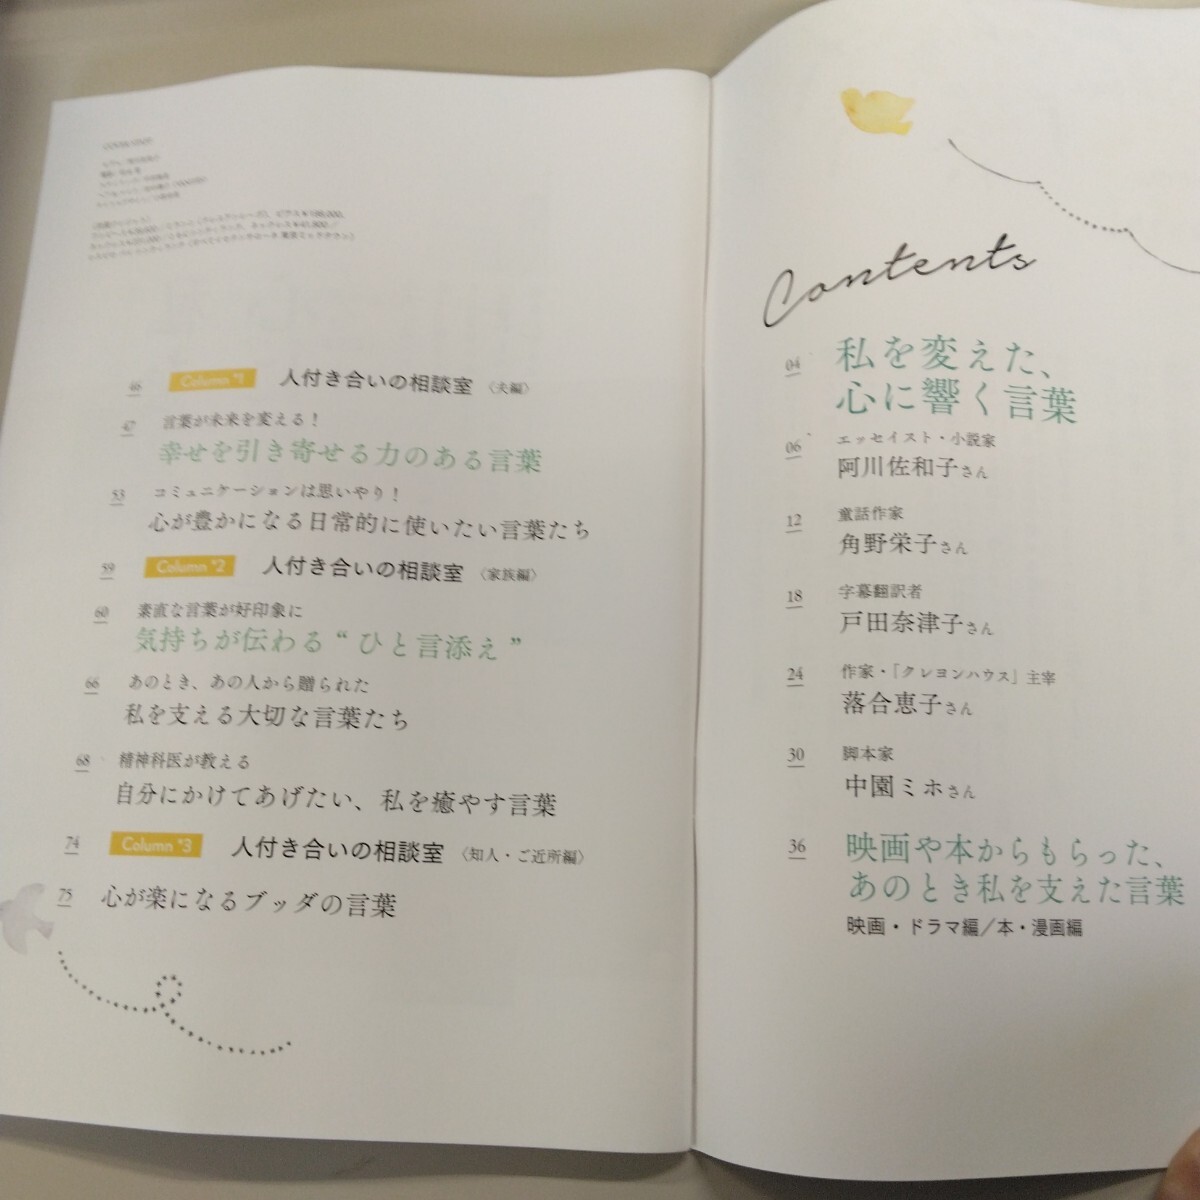 Contents
04
私を変えた、
心に響く言葉
06
エッセイスト・小説家
阿川佐和子さん
12
童話作家
角野栄子さん
18
字幕翻訳者
戸田奈津子さん
24
作家・「クレヨンハウス」主宰
落合恵子さん
30
脚本家
中園ミホさん
36
映画や本からもらった、
あのとき私を支えた言葉
映画・ドラマ編／本・漫画編
46 Column *1 人付き合いの相談室 〈夫編〉
47
言葉が未来を変える！
幸せを引き寄せる力のある言葉
53
コミュニケーションは思いやり！
心が豊かになる日常的に使いたい言葉たち
59 Column *2 人付き合いの相談室 〈家族編〉
60
素直な言葉が好印象に
気持ちが伝わる“ひと言添え”
66
あのとき、あの人から贈られた
私を支える大切な言葉たち
68
精神科医が教える
自分にかけてあげたい、私を癒やす言葉
74 Column *3 人付き合いの相談室 〈知人・ご近所編〉
75 心が楽になるブッダの言葉